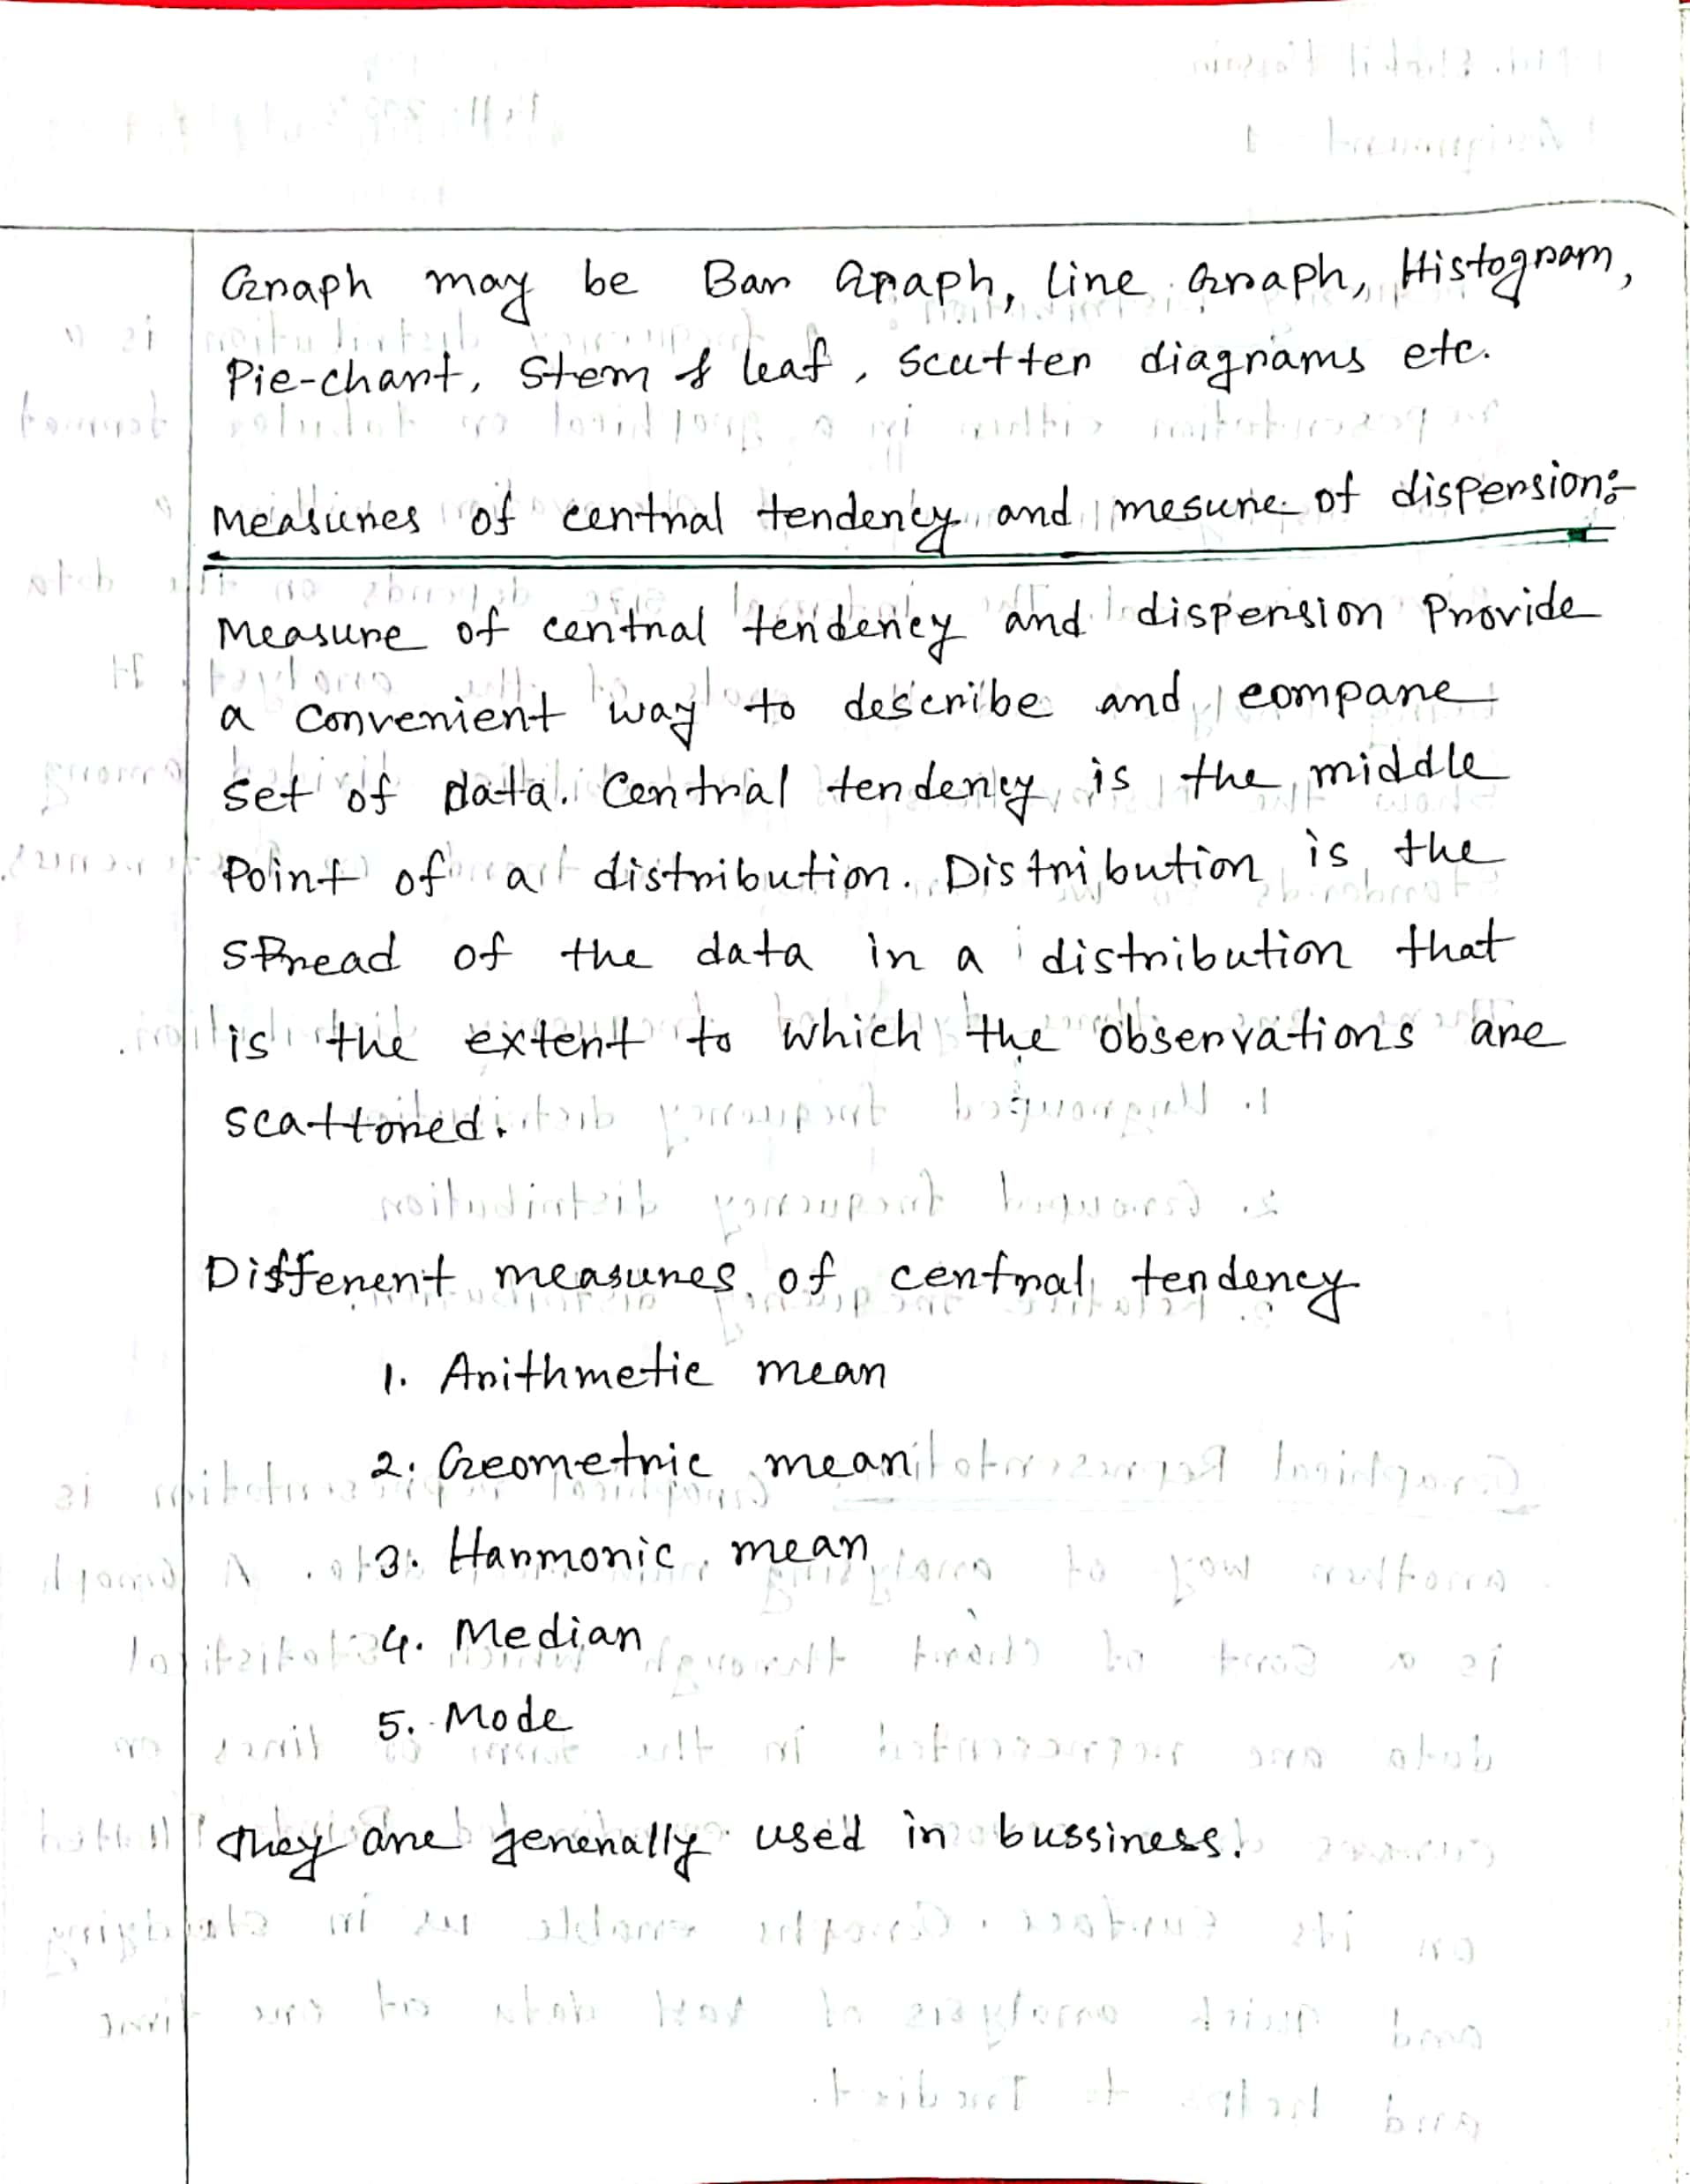 Graph may be Bar Graph, line Graph, Histogram,
Pie-chart, Stem & leaf, Scutter diagrams etc.
Measures of central tendency and mesure of dispersion:-
Measure of central tendency and dispersion Provide
a convenient way to describe and compare
set of data. Central tendency is the middle
Point of a distribution. Distribution is the
spread of the data in a distribution that
is the extent to which the observations are
scattored.
Different measures of central tendency
1. Arithmetic mean
2. Geometric mean
3. Harmonic mean
4. Median
5. Mode
They are generally used in bussiness.